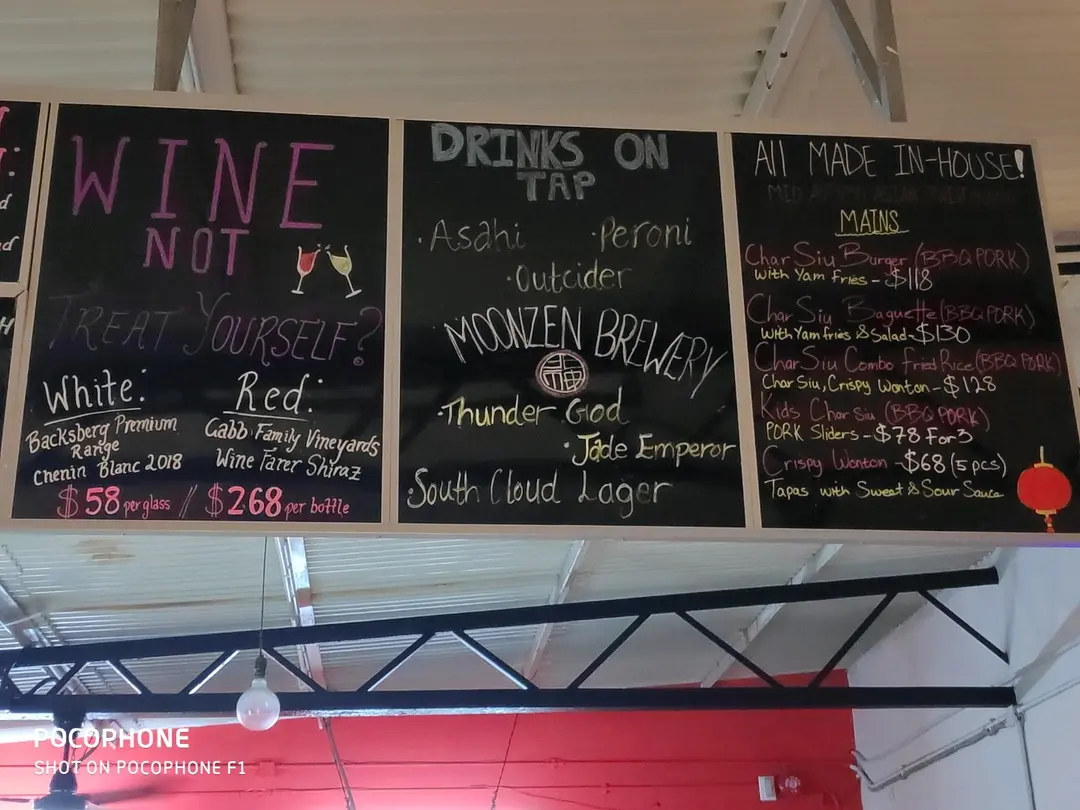 WINE
NOT
TREAT YOURSELF?
White:
Backsberg Premium
Range
Chenin Blanc 2018
Red:
Gabb Family Vineyards
Wine Farer Shiraz
$58 per glass // $268 per bottle
DRINKS ON
TAP
·Asahi ·Peroni
·Outcider
MOONZEN BREWERY
·Thunder God
·Jade Emperor
·South Cloud Lager
All MADE IN-HOUSE!
MAINS
Char Siu Burger (BBQ PORK)
with Yam fries - $118
Char Siu Baguette (BBQ PORK)
with Yam fries & Salad - $130
Char Siu Combo Fried Rice (BBQ PORK)
Char Siu, Crispy Wonton - $128
Kids Char Siu (BBQ PORK)
PORK Sliders - $78 For 3
Crispy Wonton - $68 (5 pcs)
Tapas with Sweet & Sour Sauce
POCOPHONE
SHOT ON POCOPHONE F1